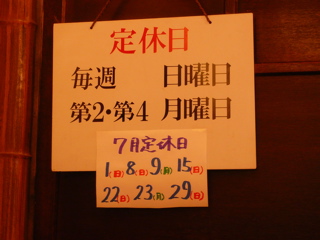 定休日
毎週 日曜日
第2・第4 月曜日
7月定休日
1(日) 8(日) 9(月) 15(日)
22(日) 23(月) 29(日)